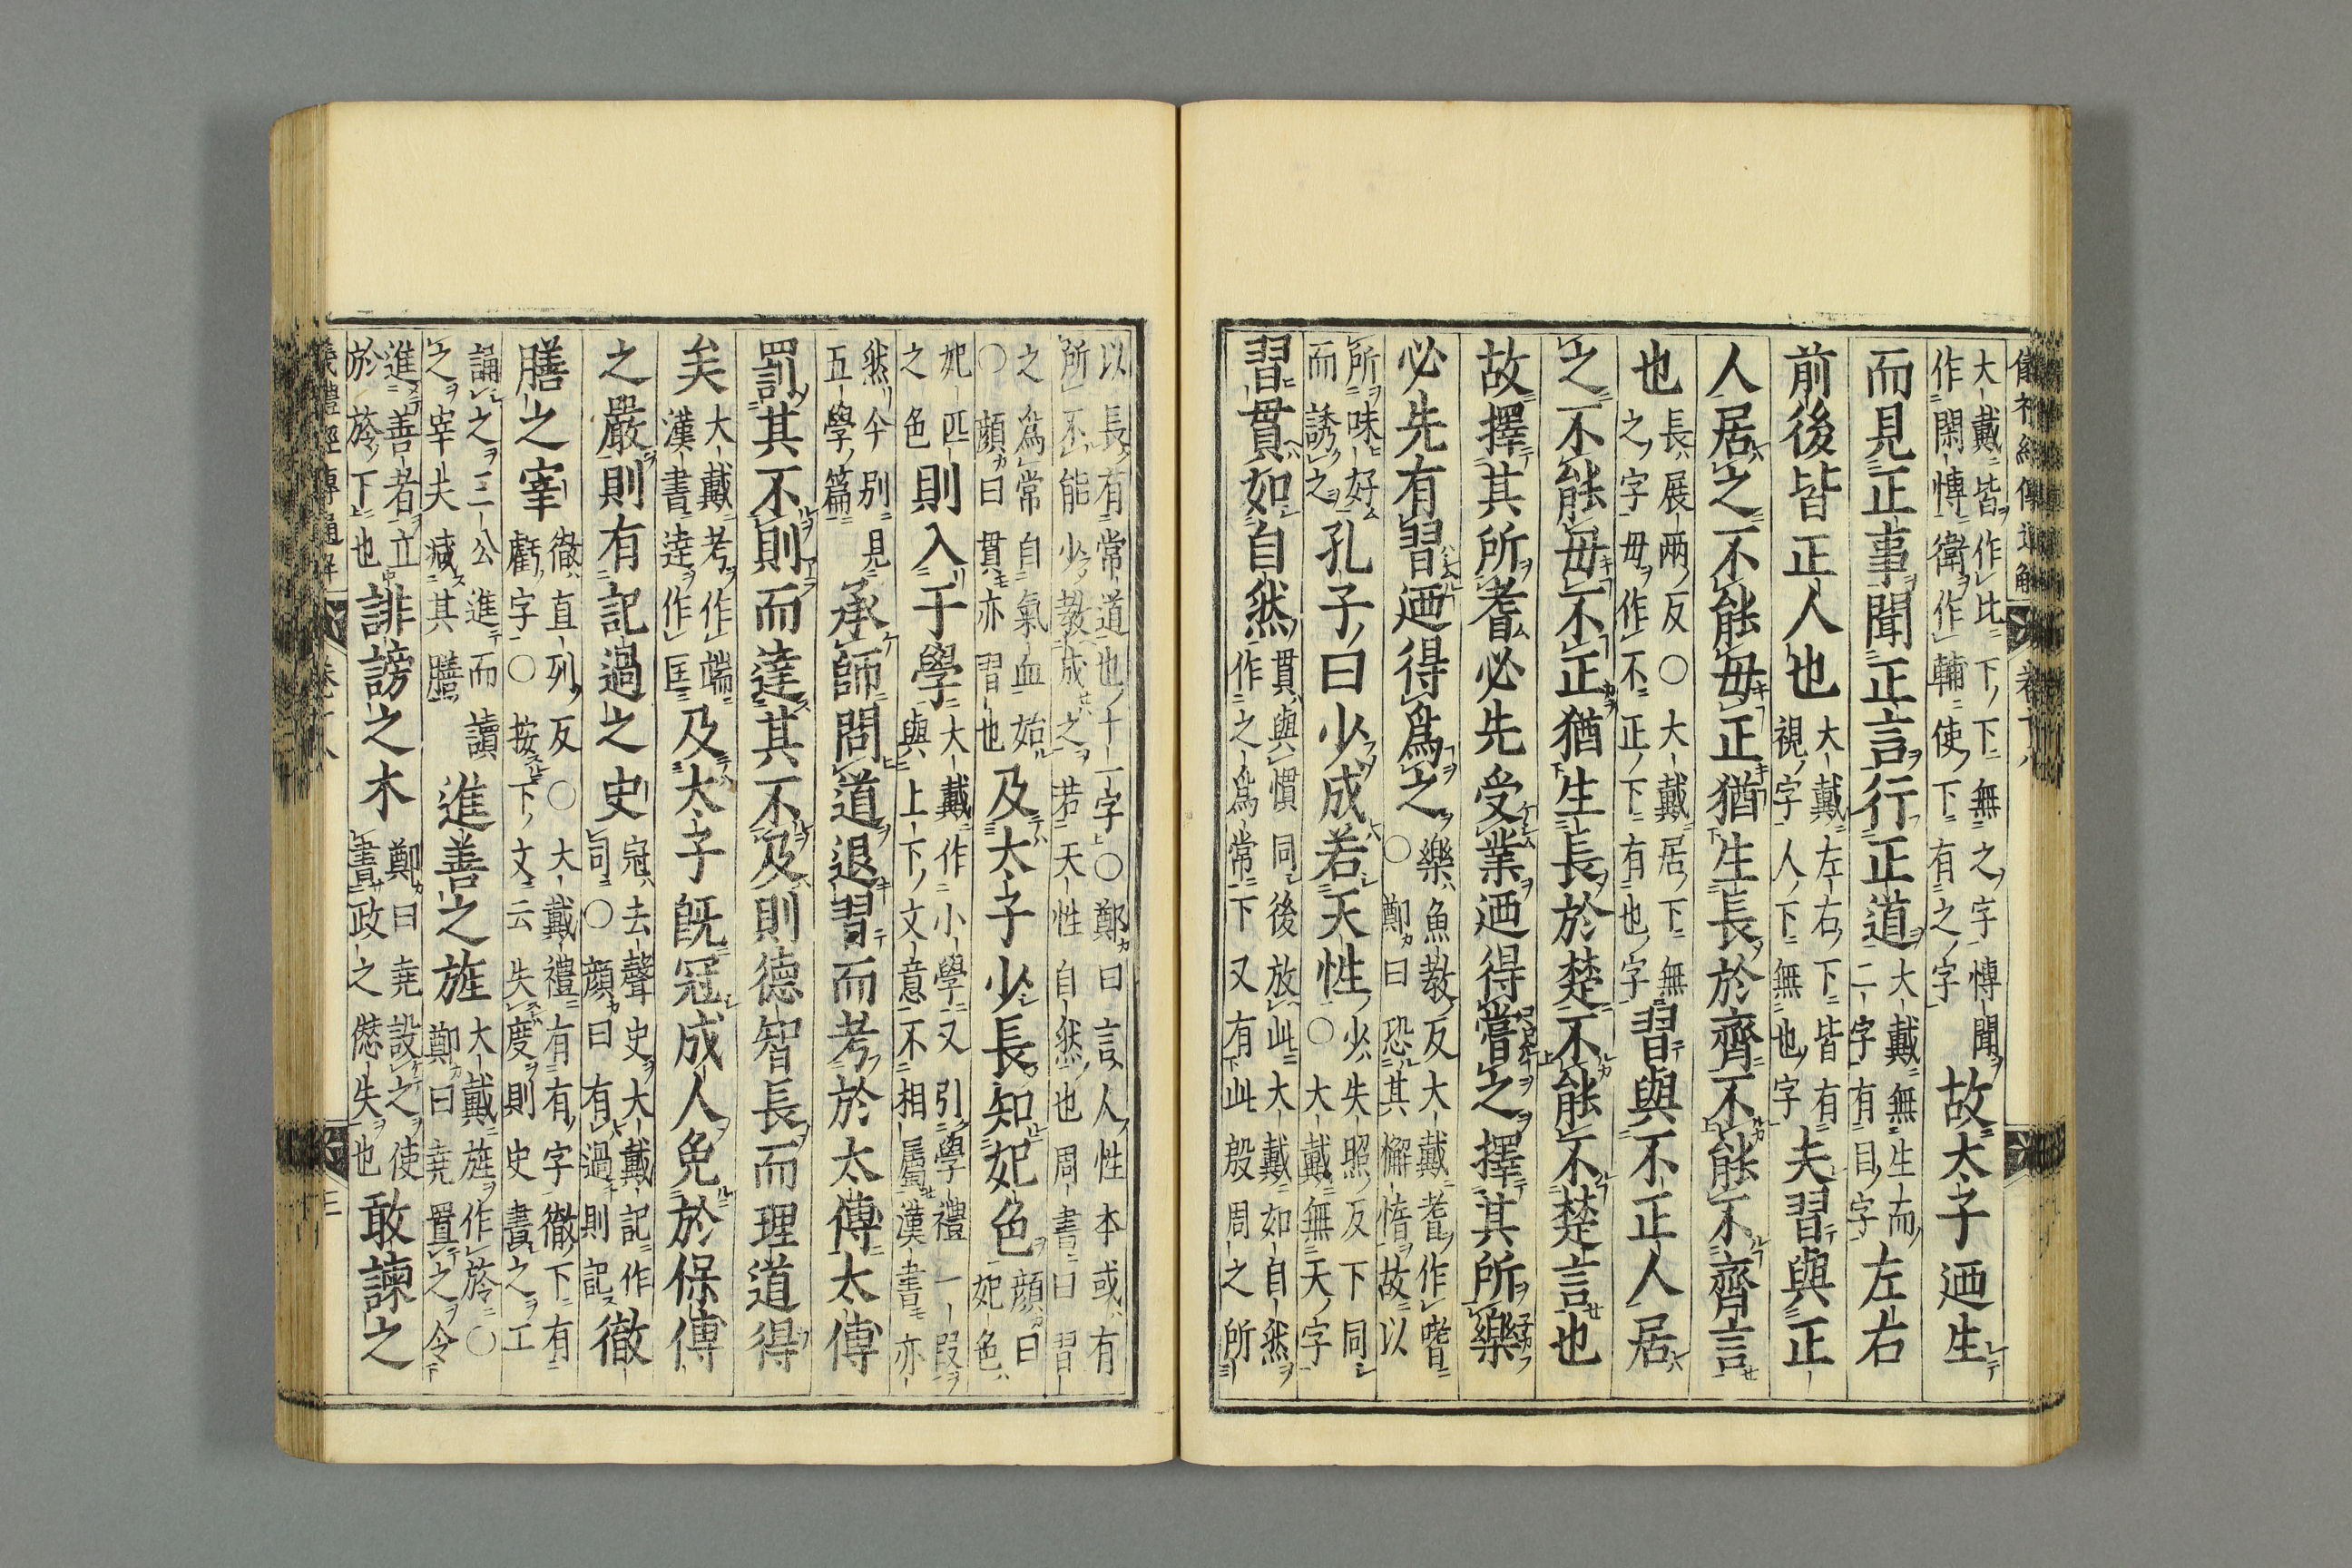 儀禮經傳通解 卷十八
大戴皆作比下下無之字慱聞
作閑慱衛作輔使下有之字 故太子迺生
而見正事聞正言行正道 大戴無生而
二字有目字 左右
前後皆正人也 大戴左右下皆有
視字人下無也字 夫習與正
人居之不能毋正猶生長於齊不能不齊言
也 長展兩反○大戴居下無
之字毋作不正下有也字 習與不正人居
之不能毋不正猶生長於楚不能不楚言也
故擇其所耆必先受業迺得嘗之擇其所樂
必先有習迺得爲之 樂魚敎反大戴耆作嗜
○鄭曰恐其懈惰故以
所味好
而誘之 孔子曰少成若天性 少失照反下同
○大戴無天字
習貫如自然 貫與慣同後放此大戴如自然
作之爲常下又有此殷周之所
以長有常道也十一字○鄭曰言人性本或有
所不能少敎成之若天性自然也周書曰習
之爲常自氣血始
○顔曰貫亦習也 及太子少長知妃色 顔曰
妃色
妃匹
之色 則入于學 大戴作小學又引學禮一叚
與上下文意不相屬漢書亦
然今別見
五學篇 承師問道退習而考於太傅太傅
罰其不則而達其不及則德智長而理道得
矣 大戴考作端
漢書逹作匡 及太子旣冠成人免於保傅
之嚴則有記過之史 冠去聲史大戴記作
司○顔曰有過則記 徹
膳之宰 徹直列反○大戴禮有有字徹下有
虧字○按下文云失度則史書之工
誦之三公進而讀
之宰夫减其膳 進善之旌 大戴旌作旍○
鄭曰堯置之令
進善者立
於旍下也 誹謗之木 鄭曰堯設之使
書政之愆失也 敢諫之
儀禮經傳通解 卷十八 三